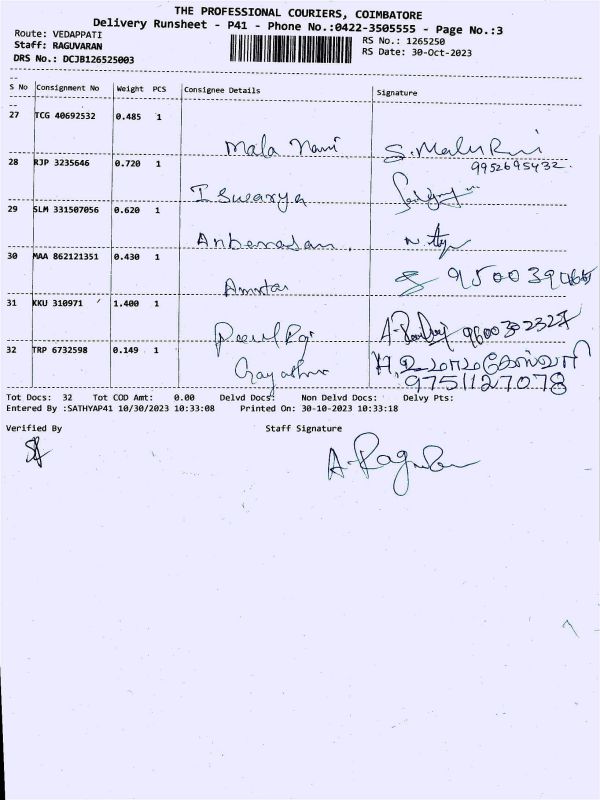 THE PROFESSIONAL COURIERS, COIMBATORE
Delivery Runsheet - P41 - Phone No.:0422-3505555 - Page No.:3
Route: VEDAPPATI
RS No.: 1265250
Staff: RAGUVARAN
RS Date: 30-Oct-2023
DRS No.: DCJB126525003
S No Consignment No Weight PCS Consignee Details Signature
27 TCG 40692532 0.485 1
Mala
9952695432
28 RJP 3235646 0.720 1
Iswarya
29 SLM 331507056 0.620 1
Anbarasan.
30 MAA 862121351 0.430 1
31 KKU 310971 1.400 1
9600302327
32 TRP 6732598 0.149 1
Gayathri
9751127078
Tot Docs: 32 Tot COD Amt: 0.00 Delvd Docs: Non Delvd Docs: Delvy Pts:
Entered By :SATHYAP41 10/30/2023 10:33:08 Printed On: 30-10-2023 10:33:18
Verified By Staff Signature